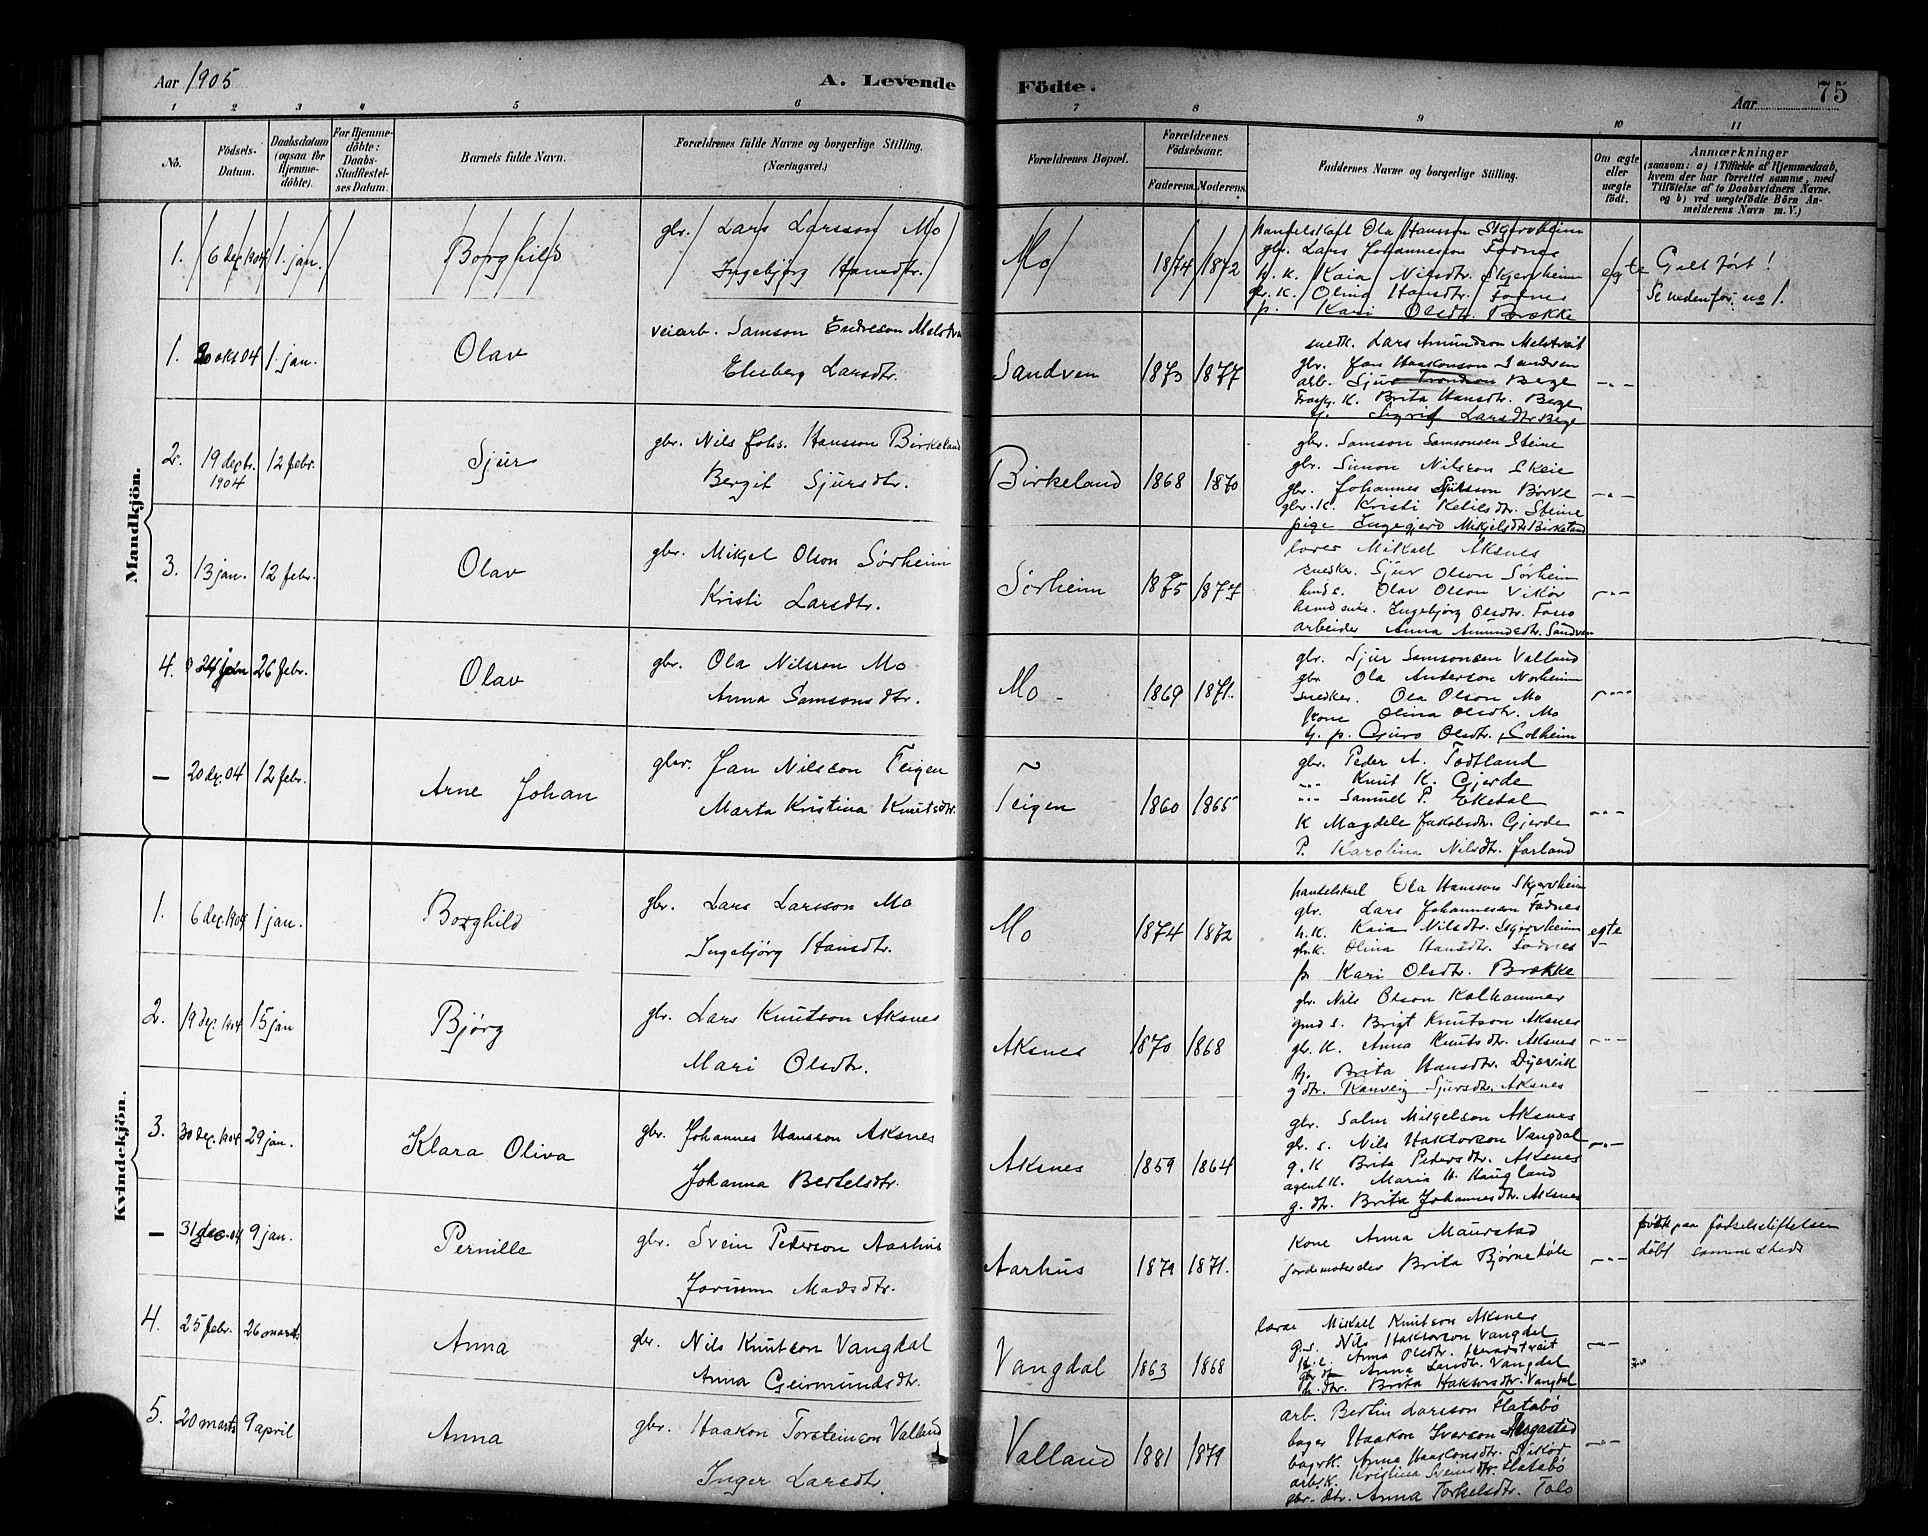 Aar 1905
A. Levende
Födte.
Aar
75
1 2 3 4 5 6 7 8 9 10 11
No.
Födsels-Datum.
Daabsdatum (ogsaa for Hjemme-döbte).
For Hjemme-döbte: Daabs-Stadfæstel-ses Datum.
Barnets fulde Navn.
Forældrenes fulde Navne og borgerlige Stilling. (Næringsvei.)
Forældrenes Bopæl.
Forældrenes Födselsaar.
Faderens.
Moderens.
Faddernes Navne og borgerlige Stilling.
Om ægte eller uægte født.
Anmærkninger
(saasom: a) i Tilfælde af Hjemmedaab, hvem der har forrettet samme, med Tilföielse af to Daabsvidners Navne. og b) ved uægtefödte Börn An-melderens Navn m. V.)
Mandkjön.
1. 6 dec 1904 1. jan. Borghild
gbr. Lars Larsson Mo
Ingebjörg Hansdtr.
Mo 1874 1872
Handelskarl Ola Hansson Skjervheim
gbr. Lars Johannesson Fodnes
h. k. Kaia Nilsdtr. Skjervheim
gbr. k. Olina Hansdtr. Fodnes
p. Kari Olsdtr. Brække
egte
Galt fört!
Se nedenfor no 1.
1. 20 okt 04 1. jan. Olav
veiarb. Samson Endreson
Larsdtr.
Sandven 1873 1877
snedk. Lars Amundson
gbr. Jon Haakonson Sandven
arb. Sjur Berge
K. Brita Hansdtr. Berge
Larsdtr. Berge
2. 19 decbr. 1904 12 febr. Sjur
gbr. Nils Johs. Hansson Birkeland
Bergit Sjursdtr.
Birkeland 1868 1870
gbr. Samson Samsonsen Steine
gbr. Simon Nilsson Skeie
gbr. Johannes Börve
gbr. K. Kristi Ketilsdtr. Steine
pige Ingegjerd Mikjelsdtr. Birkeland
3. 13 jan. 12 febr. Olav
gbr. Mikjel Olson Sörheim
Kristi Larsdtr.
Sörheim 1875 1877
lærer Mikael Aksnes
snedker. Sjur Olson Sörheim
Olav Olson Vikör
Ingebjörg Olsdtr. Fosso
arbeider Anna Amundsdtr. Sandven
4. 26 febr. Olav
gbr. Ola Nilsson Mo
Anna Samsonsdtr.
Mo 1869 1871.
gbr. Sjur Samsonsen Valland
gbr Ola Anderson Norheim
Snedker. Ola Olson Mo
Kone Olina Olsdtr. Mo
tj. p. Guro Olsdtr. Solheim
— 20 dec. 04 12 febr. Arne Johan
gbr. Jan Nilsson Teigen
Marta Kristina Knutsdtr.
Teigen 1860 1865
gbr. Peder A. Todtland
Knut K. Gjerde
Samuel P. Eketal
K Magdele Jakobsdtr. Gjerde
P. Karolina Nilsdtr. Jarland
Kvindekjön.
1. 6 dec. 1904 1 jan. Borghild
gbr. Lars Larsson Mo
Ingebjörg Hansdtr.
Mo 1874 1872
handelskarl Ola Hansson Skjervheim
gbr. Lars Johanneson Fodnes
h. K. Kaia Nilsdtr. Skjervheim
gbr. K. Olina Hansdtr. Fodnes
p. Kari Olsdtr. Brække
egte
2. 19 dec. 1904 15 jan Björg
gbr. Lars Knutson Aksnes
Mari Olsdtr.
Aksnes 1870 1868
gbr. Nils Olson Kalhammer
gmd s. Brigt Knutson Aksnes
gbr. K. Anna Knutsdtr. Aksnes
tj. Brita Hansdtr. Dyrvik
g. dtr. Ranveig Sjursdtr. Aksnes
3. 30 dec. 1904 29 jan. Klara Oliva
gbr. Johannes Hansson Aksnes
Johanna Bertelsdtr.
Aksnes 1859 1864
gbr. Salm Mikjelson Aksnes
gbr. s. Nils Haktorson Vangdal
g. K Brita Pedersdtr. Aksnes
agent K. Maria H. Haugland
g. dtr. Brita Johannesdtr. Aksnes
— 31 dec. 04 9 jan. Pernille
gbr. Svein Peterson Aarhus
Jorunn Madsdtr.
Aarhus 1879 1871.
Kone Anna Maurstad
Jordemoderelev Brita
födt paa födselsstiftelsen
döbt samme sted
4. 25 febr. 26 marts Anna
gbr. Nils Knutson Vangdal
Anna Geirmundsdtr.
Vangdal 1863 1868
lærer Mikael Knutson Aksnes
Nils Haktorson Vangdal
Anna Olsdtr.
Anna Vangdal
dtr. Brita Haktorsdtr. Vangdal
5. 20 marts 9 april Anna
gbr. Haakon Torsteinson Valland
Inger Larsdtr.
Valland 1881 1879
arb. Bertin Larsson Flatabö
bager Haakon Iverson
bager K. Anna Haakonsdtr. Vikör
arb. K. Kristina Svensdtr. Flatabö
gbr. dtr. Anna Torkelsdtr. Tolo